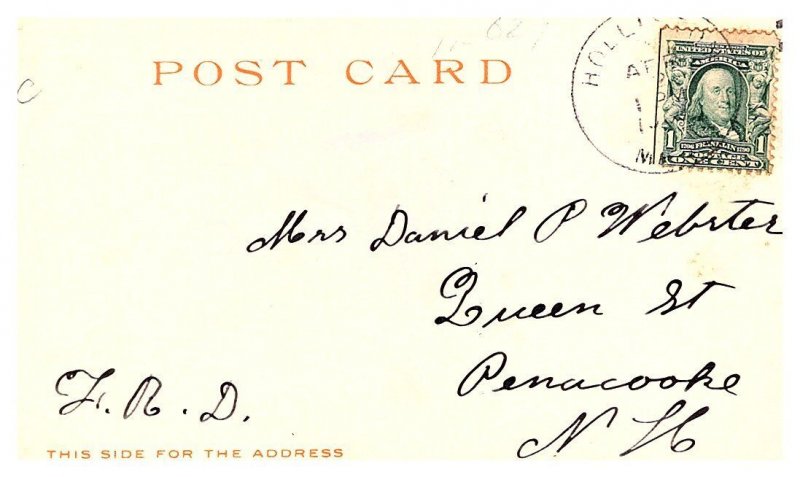 627
POST CARD
HOLLIS
AP
MA
SERIES 1902
UNITED STATES OF
AMERICA
1 1706 FRANKLIN 1790 1
POSTAGE
ONE CENT
Mrs Daniel P Webster
Queen St
Penacooke
N H
F. R. D.
THIS SIDE FOR THE ADDRESS